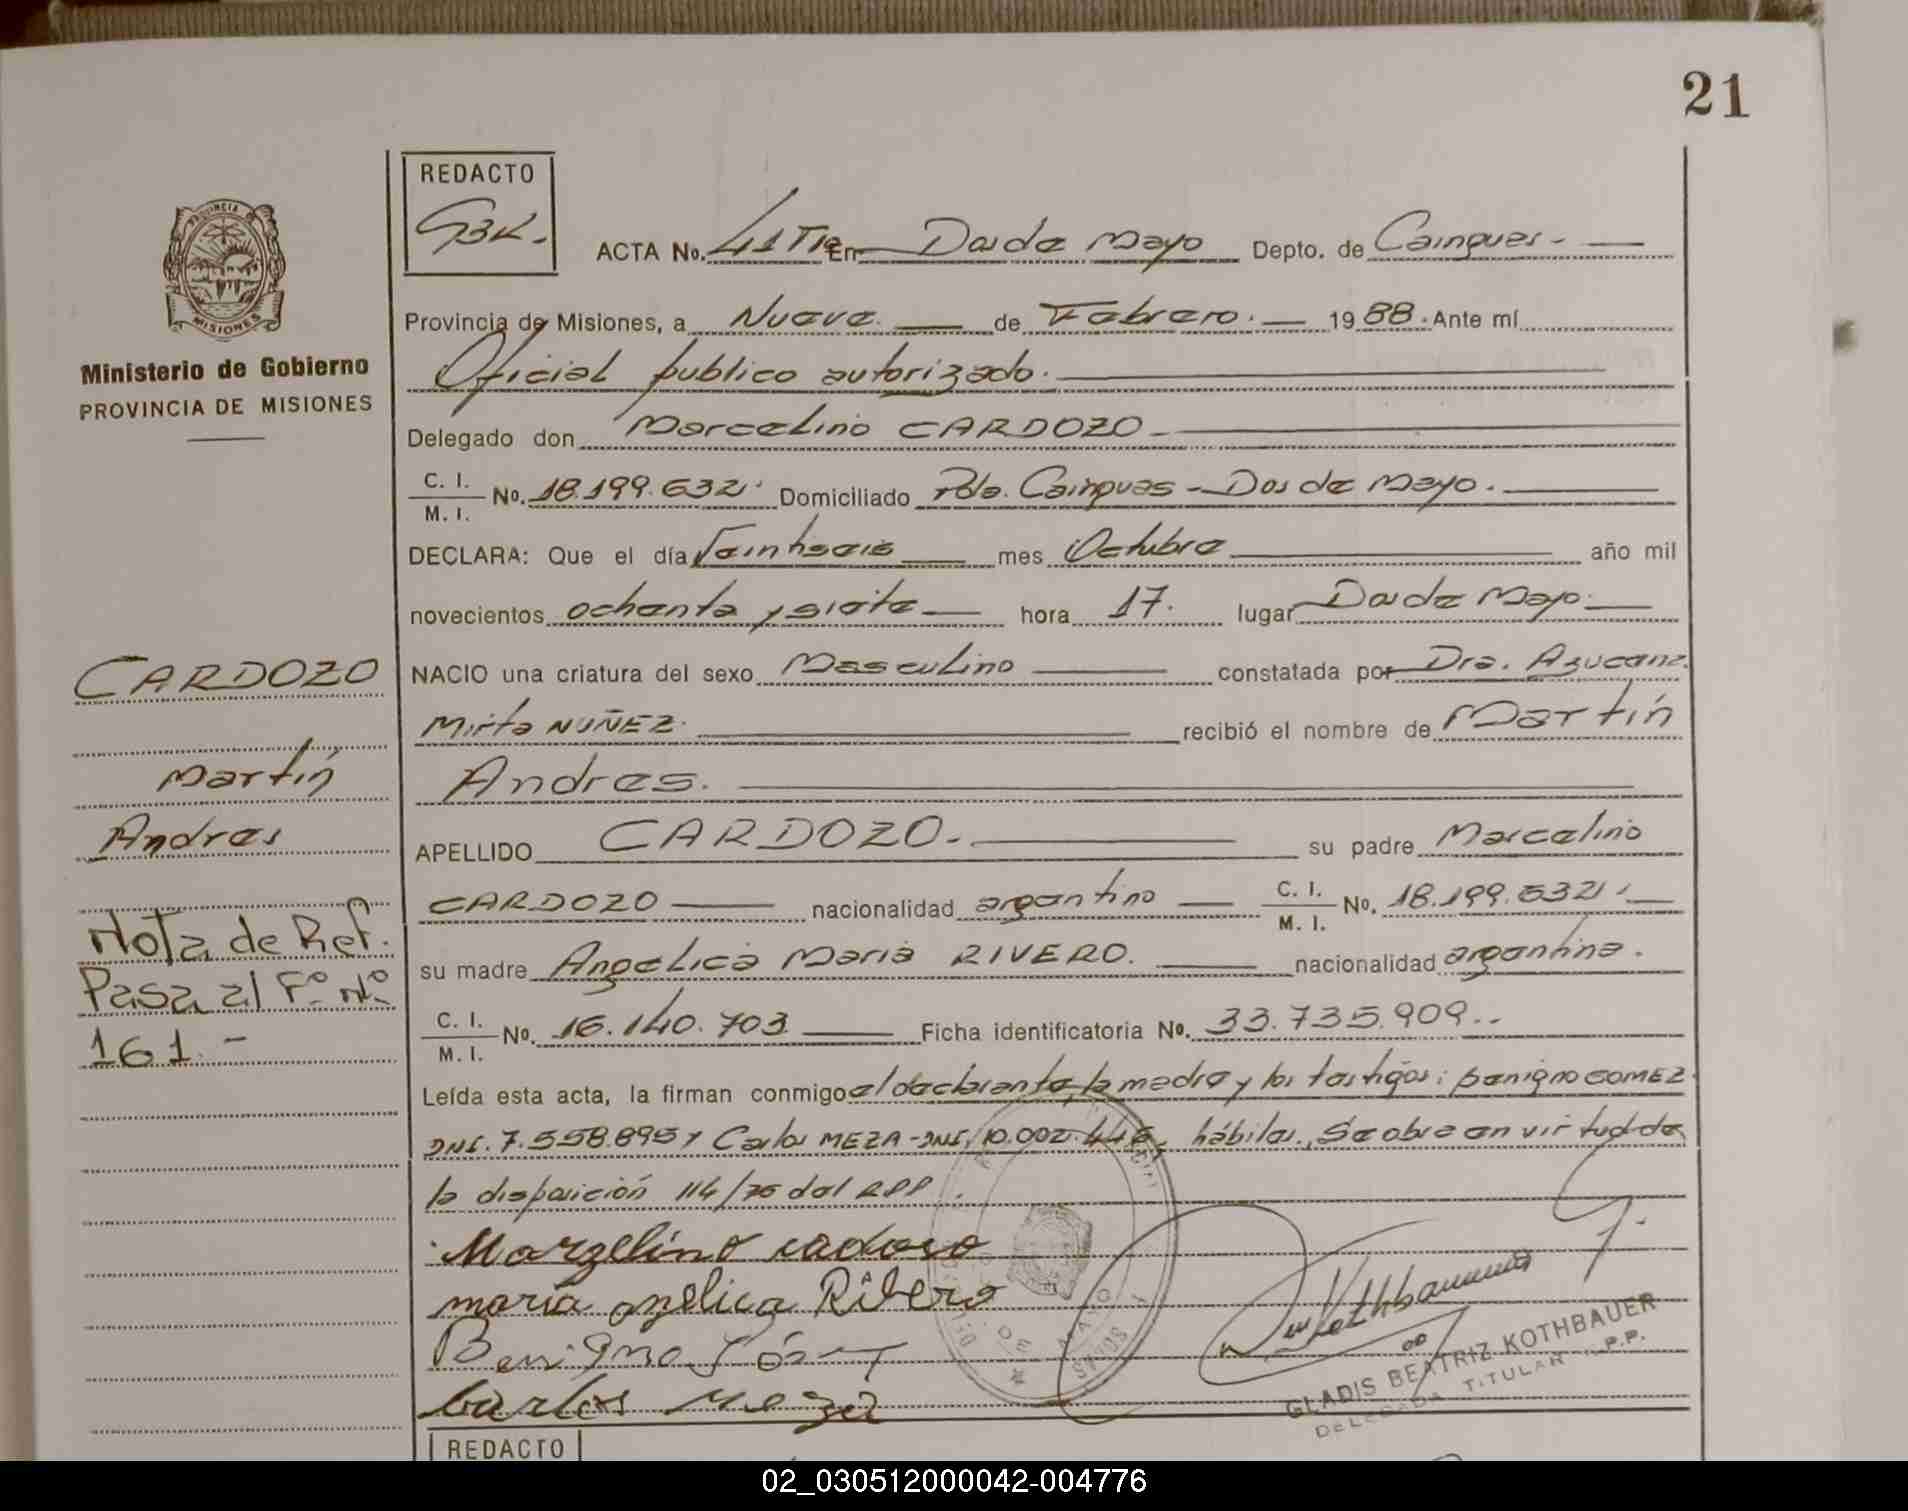 21
REDACTO
GBK.
ACTA No. 41 T1 En Dos de Mayo Depto. de Cainguas
PROVINCIA
MISIONES
Provincia de Misiones, a Nueve de Febrero. 1988. Ante mí
Ministerio de Gobierno
PROVINCIA DE MISIONES
Oficial publico autorizado.
Delegado don Marcelino CARDOZO
C. I.
M. I.
No. 18.199.632 Domiciliado Pdo. Cainguas - Dos de Mayo.
DECLARA: Que el día Veintiseis mes Octubre año mil
novecientos ochenta y siete hora 17. lugar Dos de Mayo
CARDOZO
NACIO una criatura del sexo Masculino constatada por Dra. Azucena
Mirta NUÑEZ. recibió el nombre de Martín
Martín
Andres.
Andres
APELLIDO CARDOZO. su padre Marcelino
CARDOZO nacionalidad argentino C. I.
M. I.
No. 18.199.632
Nota de Ref.
Pasa al Fº Nº
161.-
su madre Angelica Maria RIVERO. nacionalidad argentina.
C. I.
M. I.
No. 16.140.703 Ficha identificatoria No. 33.735.909..
Leída esta acta, la firman conmigo el declarante, la madre y los testigos: Benigno GOMEZ
DNI. 7.558.895 y Carlos MEZA - DNI. 10.002.446, hábiles. Se labra en virtud de
la disposición 114/76 del RPP.
Marzelino cadoso
maria angelica Ribero
Benigno
Carlos Meza
GLADIS BEATRIZ KOTHBAUER
DELEGADA TITULAR R.P.P.
REDACTO
02_030512000042-004776